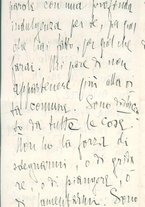 parole con una profonda
indulgenza per te, per quel
che hai fatto, per quel che
farai. Mi pare di non
appartenere più alla vi-
ta comune. Sono
da tutte le cose.
Non ho la forza di
sdegnarmi o di grida
re, o di piangere, o
di lamentarmi. Sono